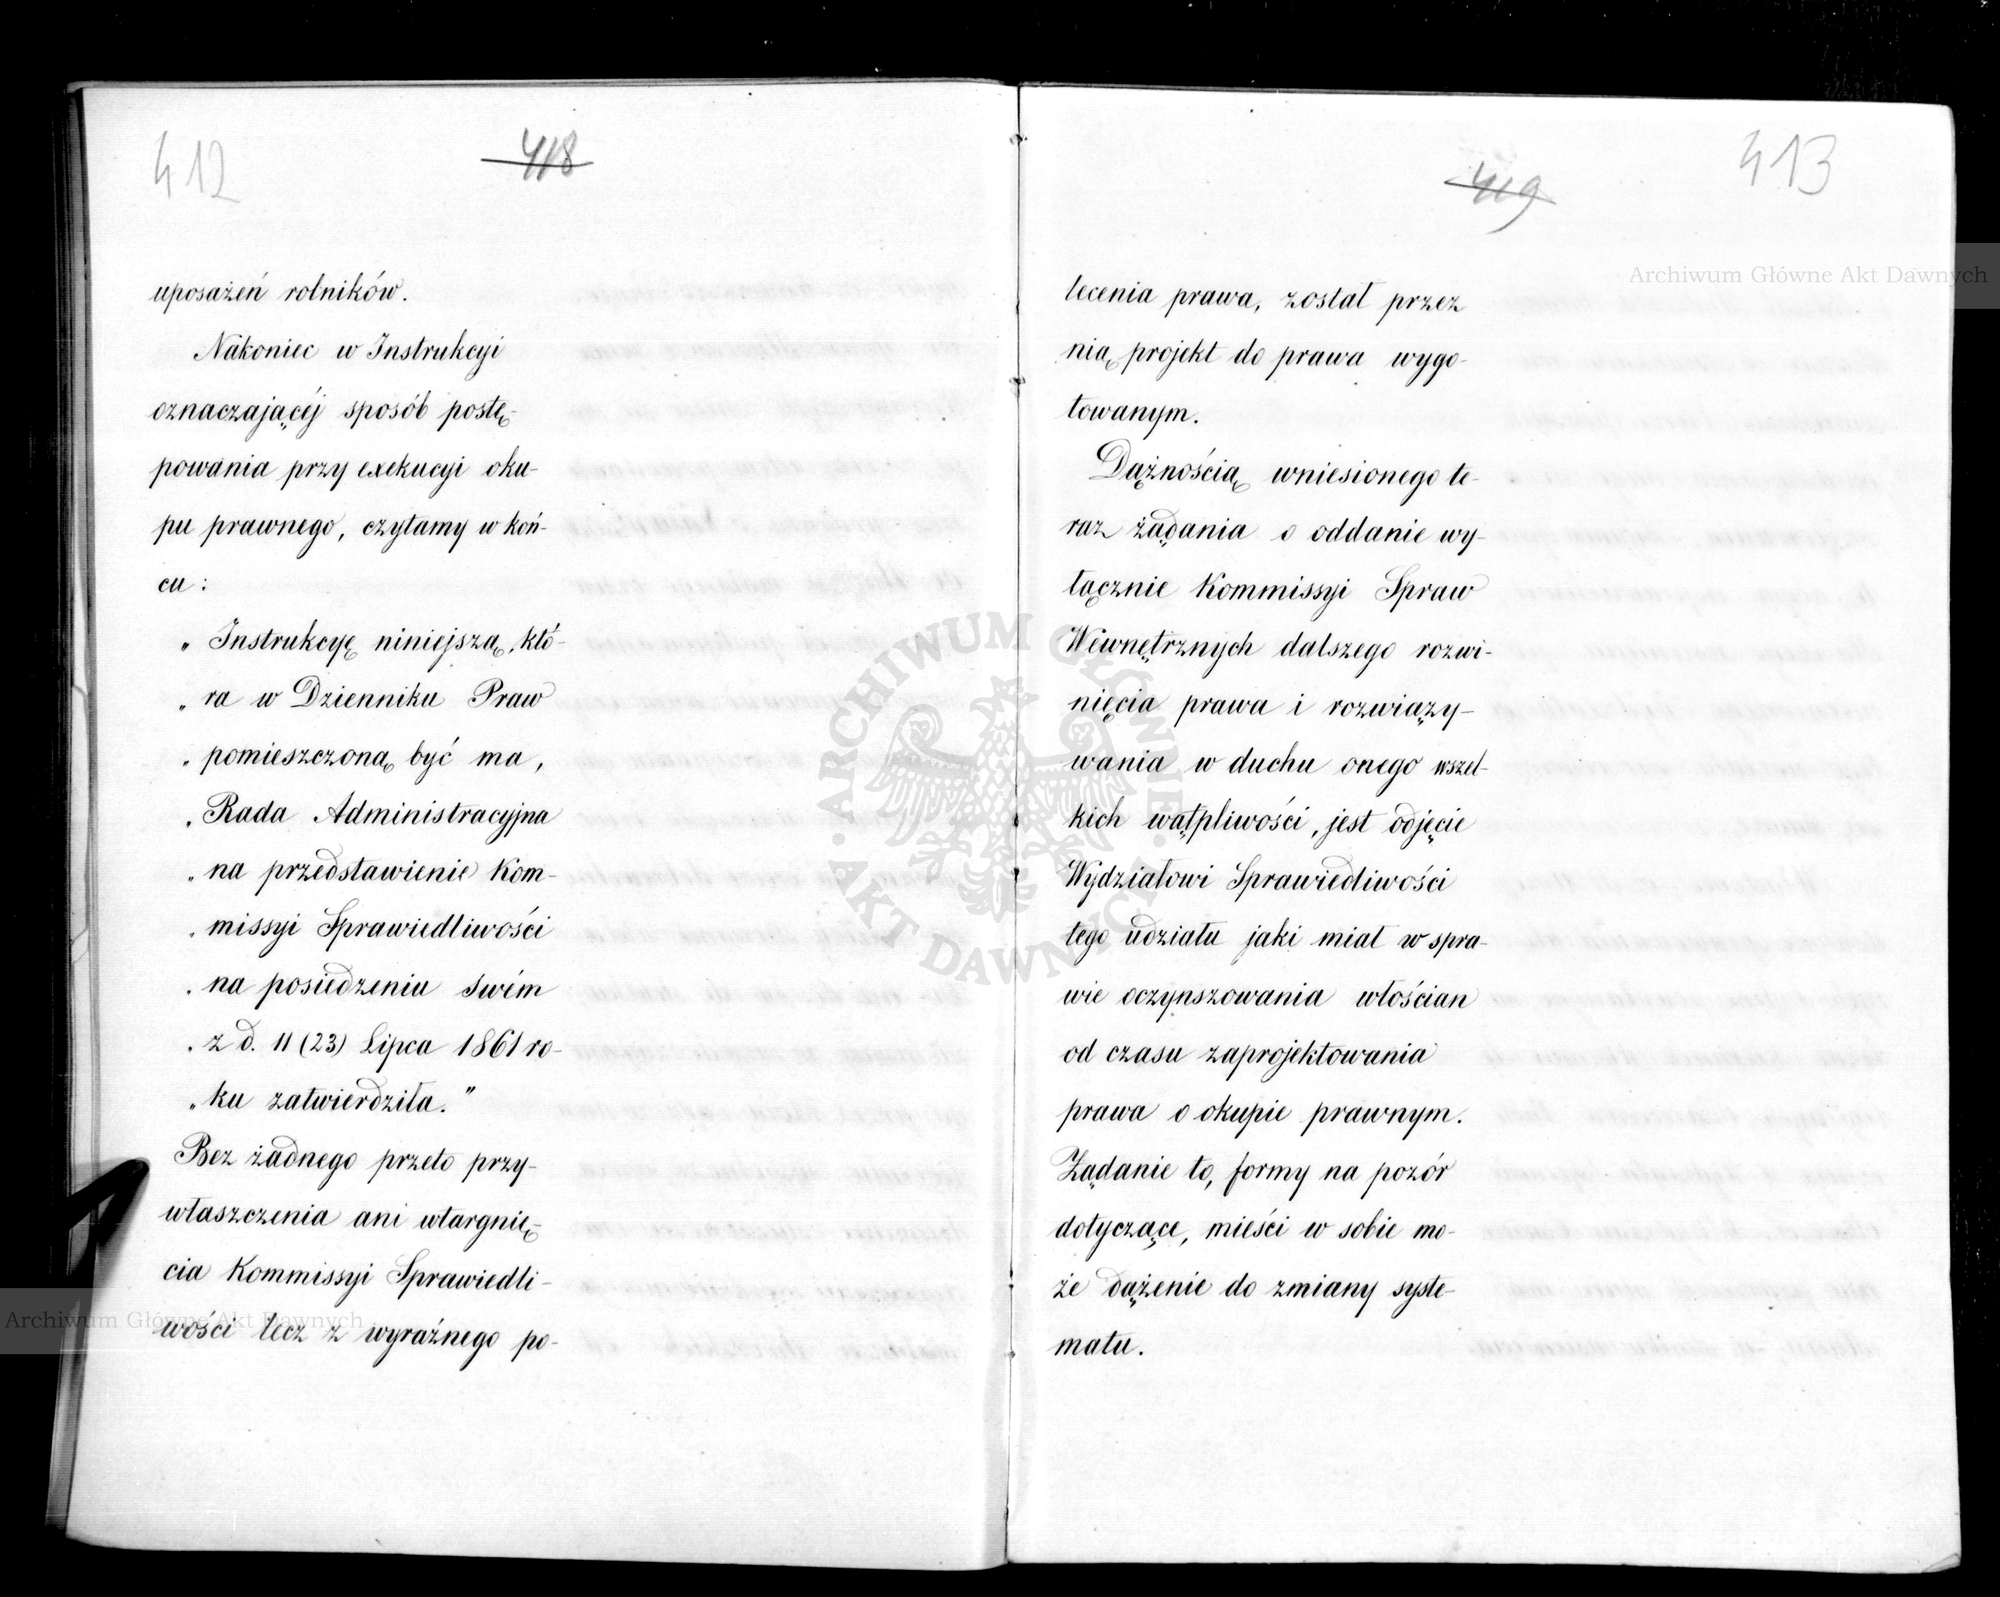 412
418
uposażeń rolników.
Nakoniec w Instrukcyi
oznaczającéj sposób postę-
powania przy exekucyi oku-
pu prawnego, czytamy w koń-
cu:
„ Instrukcyę niniejszą, któ-
„ ra w Dzienniku Praw
„ pomieszczoną być ma,
„ Rada Administracyjna
„ na przedstawienie Kom-
„ missyi Sprawiedliwości
„ na posiedzeniu swém
„ z d. 11 (23) Lipca 1861 ro-
„ ku zatwierdziła."
Bez żadnego przeto przy-
właszczenia ani wtargnię-
cia Kommissyi Sprawiedli-
wości lecz z wyraźnego po-
413
419
lecenia prawa, został przez
nią projekt do prawa wygo-
towanym.
Dążnością wniesionego te-
raz żądania o oddanie wy-
łącznie Kommissyi Spraw
Wewnętrznych dalszego rozwi-
nięcia prawa i rozwiązy-
wania w duchu onego wszel-
kich wątpliwości, jest odjęcie
Wydziałowi Sprawiedliwości
tego udziału jaki miał w spra-
wie oczynszowania włościan
od czasu zaprojektowania
prawa o okupie prawnym.
Żądanie to, formy na pozór
dotyczące, mieści w sobie mo-
że dążenie do zmiany syste-
matu.
Archiwum Główne Akt Dawnych
Archiwum Główne Akt Dawnych
ARCHIWUM GŁÓWNE AKT DAWNYCH